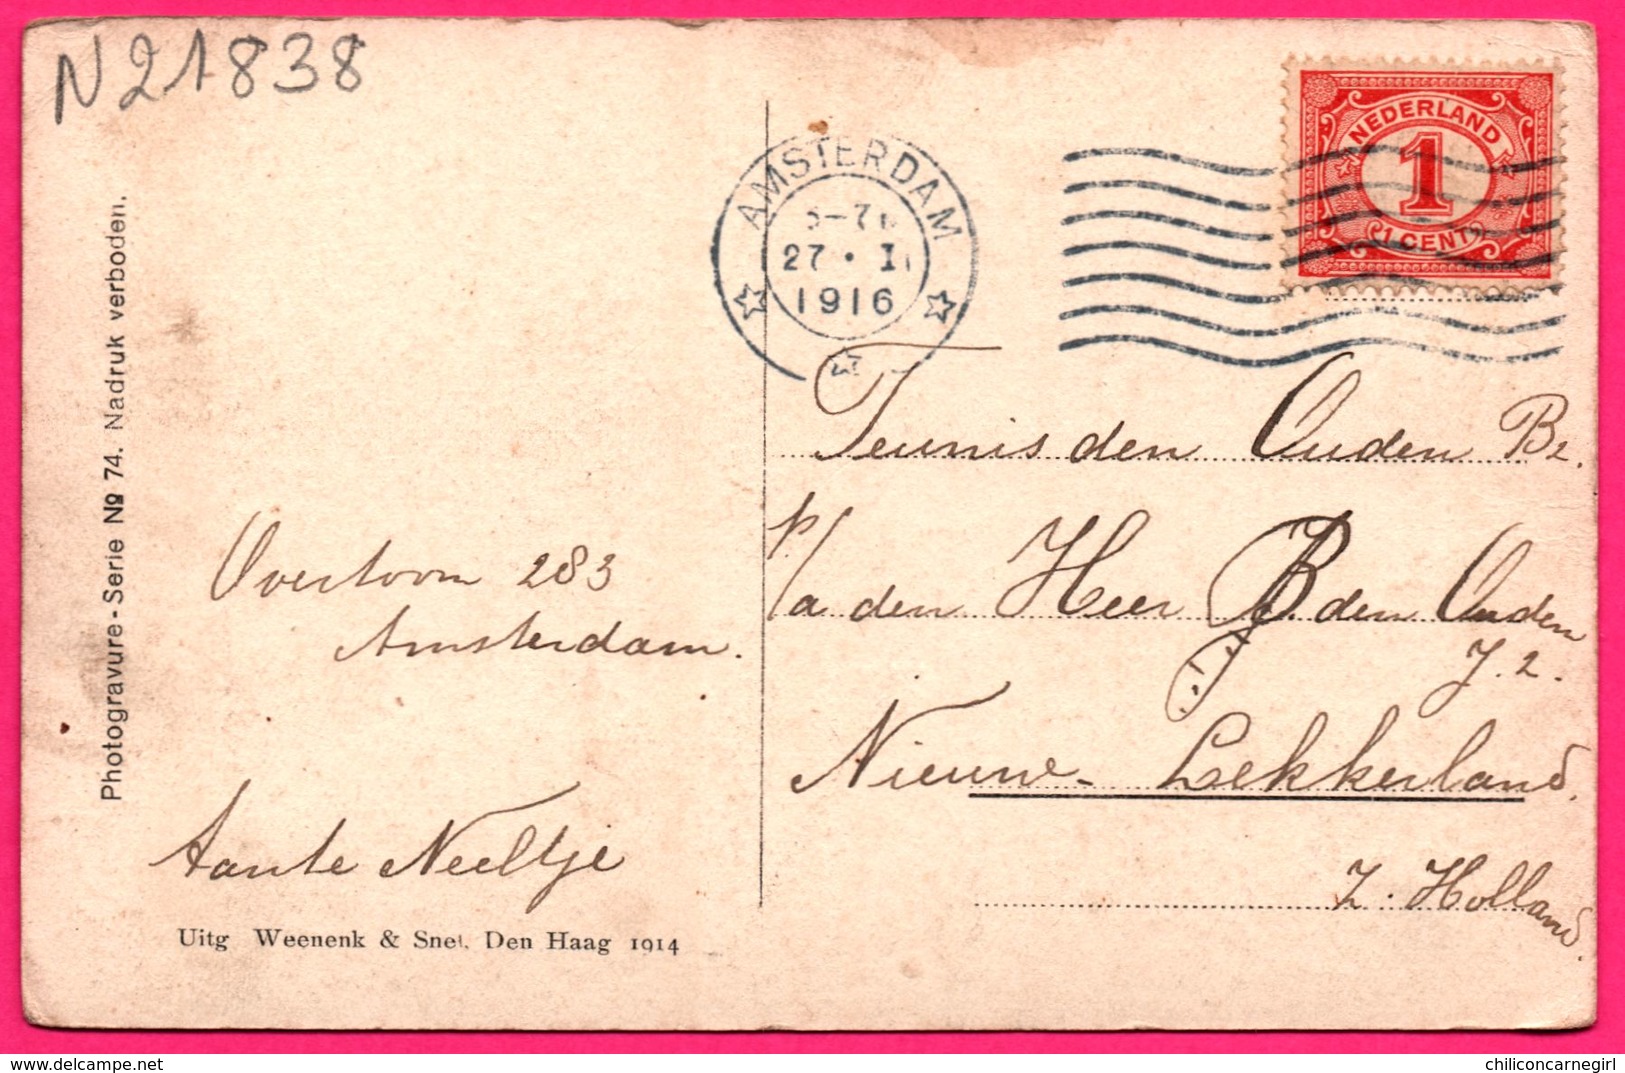 N21838
Photogravure-Serie № 74. Nadruk verboden.
AMSTERDAM
27 · I
1916
NEDERLAND
1
1 CENT
Teunis den Ouden Bz.
p/a den Heer B. den Ouden
Jz.
Nieuw-Lekkerland.
Z. Holland.
Overtoom 283
Amsterdam.
Tante Neeltje
Uitg Weenenk & Snel. Den Haag 1914
chiliconcarnegirl